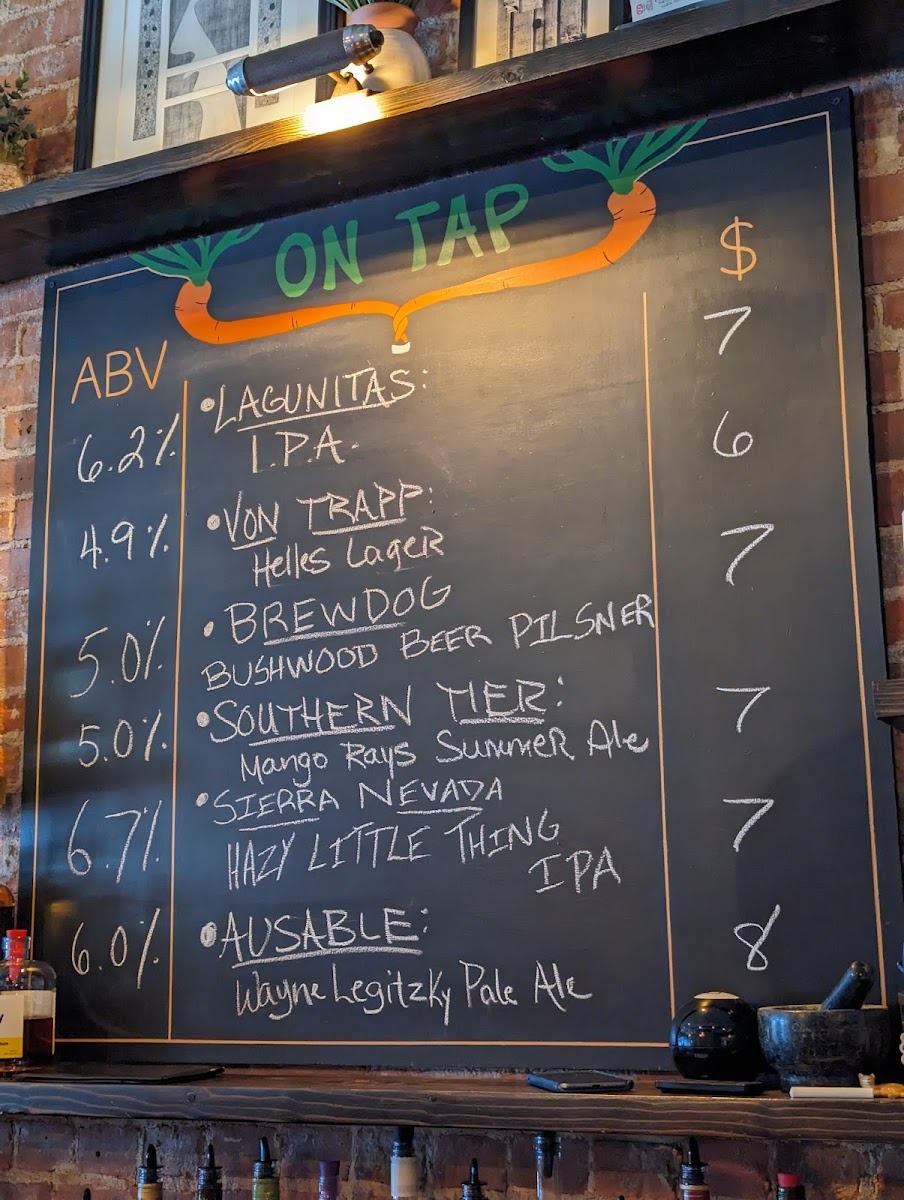 ON TAP
$
ABV
• LAGUNITAS: 7
6.2% I.P.A.
6
• VON TRAPP:
4.9% Helles Lager
7
• BREWDOG
5.0% BUSHWOOD BEER PILSNER
• SOUTHERN TIER: 7
5.0% Mango Rays Summer Ale
• SIERRA NEVADA 7
6.7% HAZY LITTLE THING
IPA
• AUSABLE: 8
6.0% Wayne Legitzky Pale Ale